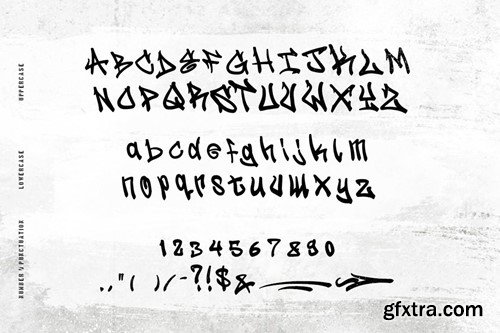 UPPERCASE
ABCDEFGHIJKLM
NOPQRSTUVWXYZ
LOWERCASE
abcdefghijklm
nopqrstuvwxyz
NUMBER & PUNCTUATION
1234567890
.,"()/-?!$&
gfxtra.com